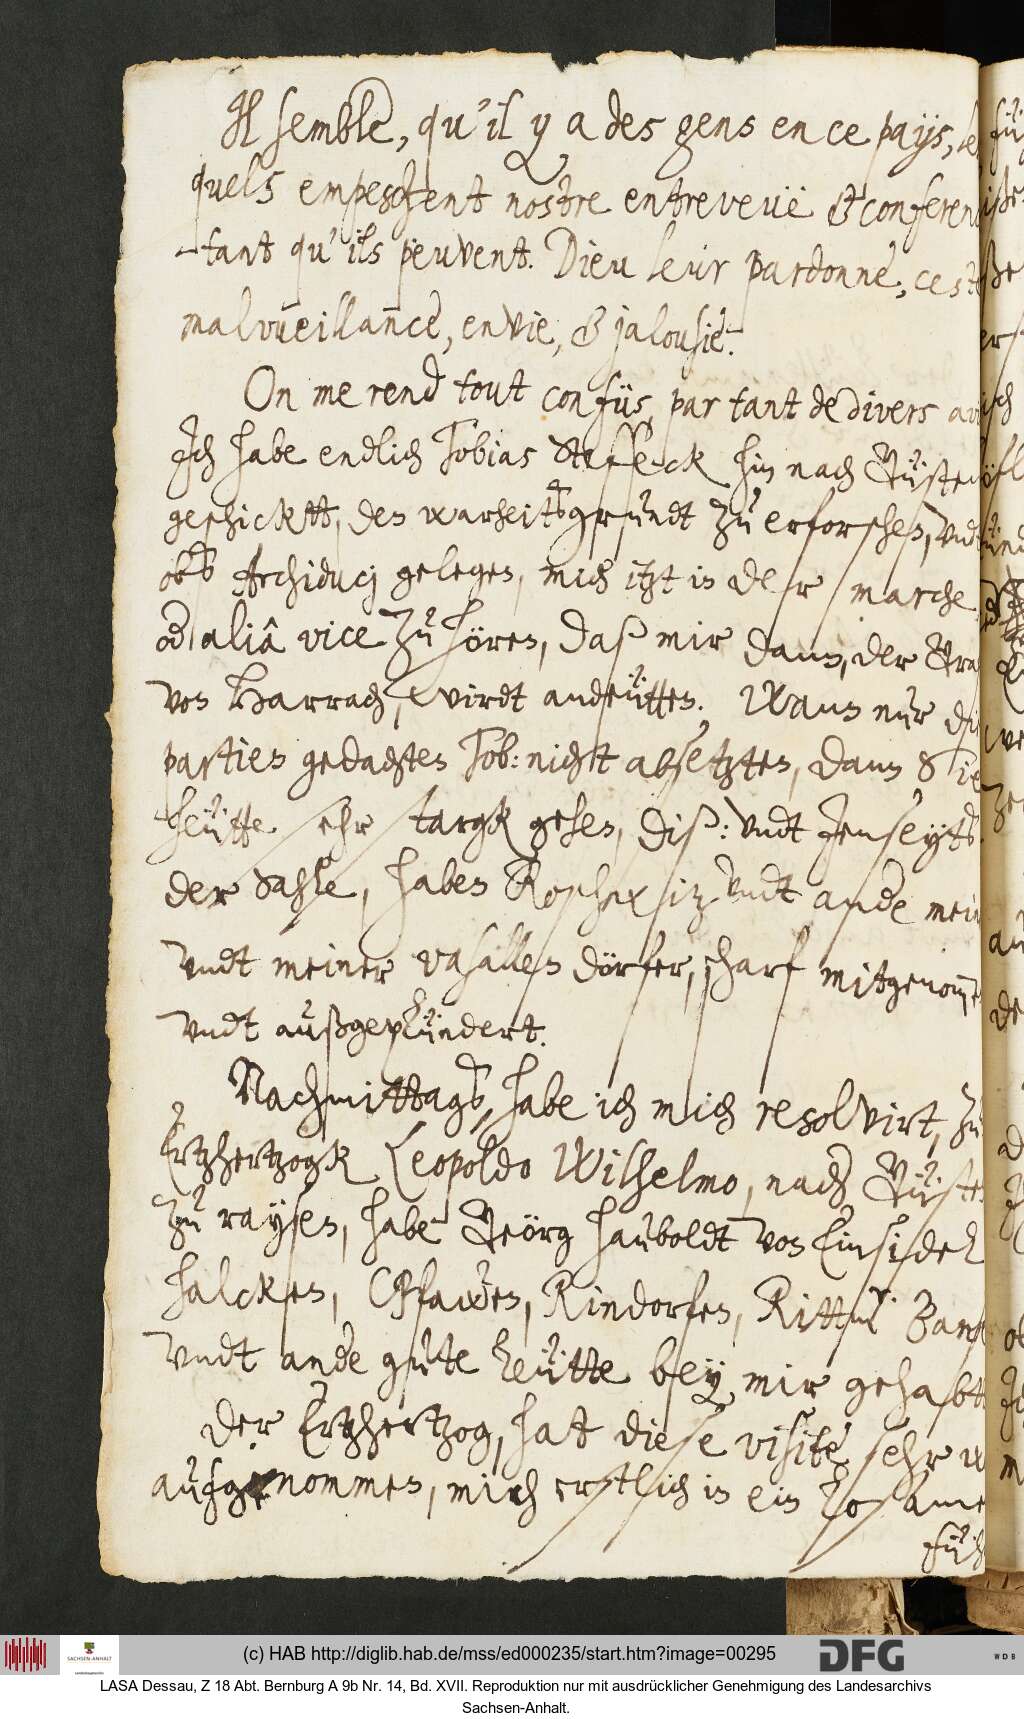 Il semble, qu'il y a des gens en ce païjs, les
quels empeschent nostre entreveuë & conferen
tant qu'ils peuvent. Dieu leur pardonne, c'est
malvueillance, envie, & jalousie.
On me rend tout confüs, par tant de divers av
Ich habe endlich Tobias Steffeck hin nach Güsten
geschicktt, den warheittsgrundt zu erforschen, vndt
obs Archiducj gelegen, mich itzt in der marche
od aliâ vice zu hören, daß mir dann, der Gra
von Harrach, wirdt andeütten. Wann nur die
partien gedachten Tob: nicht absetzten, dann Sie
heütte sehr starck gehen, diß: vndt Jenseyts
der Sahle, haben Roschwitz vndt and{e} mein
vndt meiner vasallen dörfer, scharf mitgenom̅e
vndt außgeplündert.
Nachmittags, habe ich mich resolvirt, zu
Ertzhertzogk Leopoldo Wilhelmo, nach Güsten
zu raysen, habe Geörg Hauboldt von Einsidel
Halcken, Pfawen, Rindorfen, Rittm{r}. Banse
vndt and{e} gute leütte bey mir gehabtt
Der Ertzhertzog, hat diese visite sehr w
aufgenommen, mich erstlich in ein losame
füh
(c) HAB http://diglib.hab.de/mss/ed000235/start.htm?image=00295
DFG
SACHSEN-ANHALT
WDB
LASA Dessau, Z 18 Abt. Bernburg A 9b Nr. 14, Bd. XVII. Reproduktion nur mit ausdrücklicher Genehmigung des Landesarchivs
Sachsen-Anhalt.